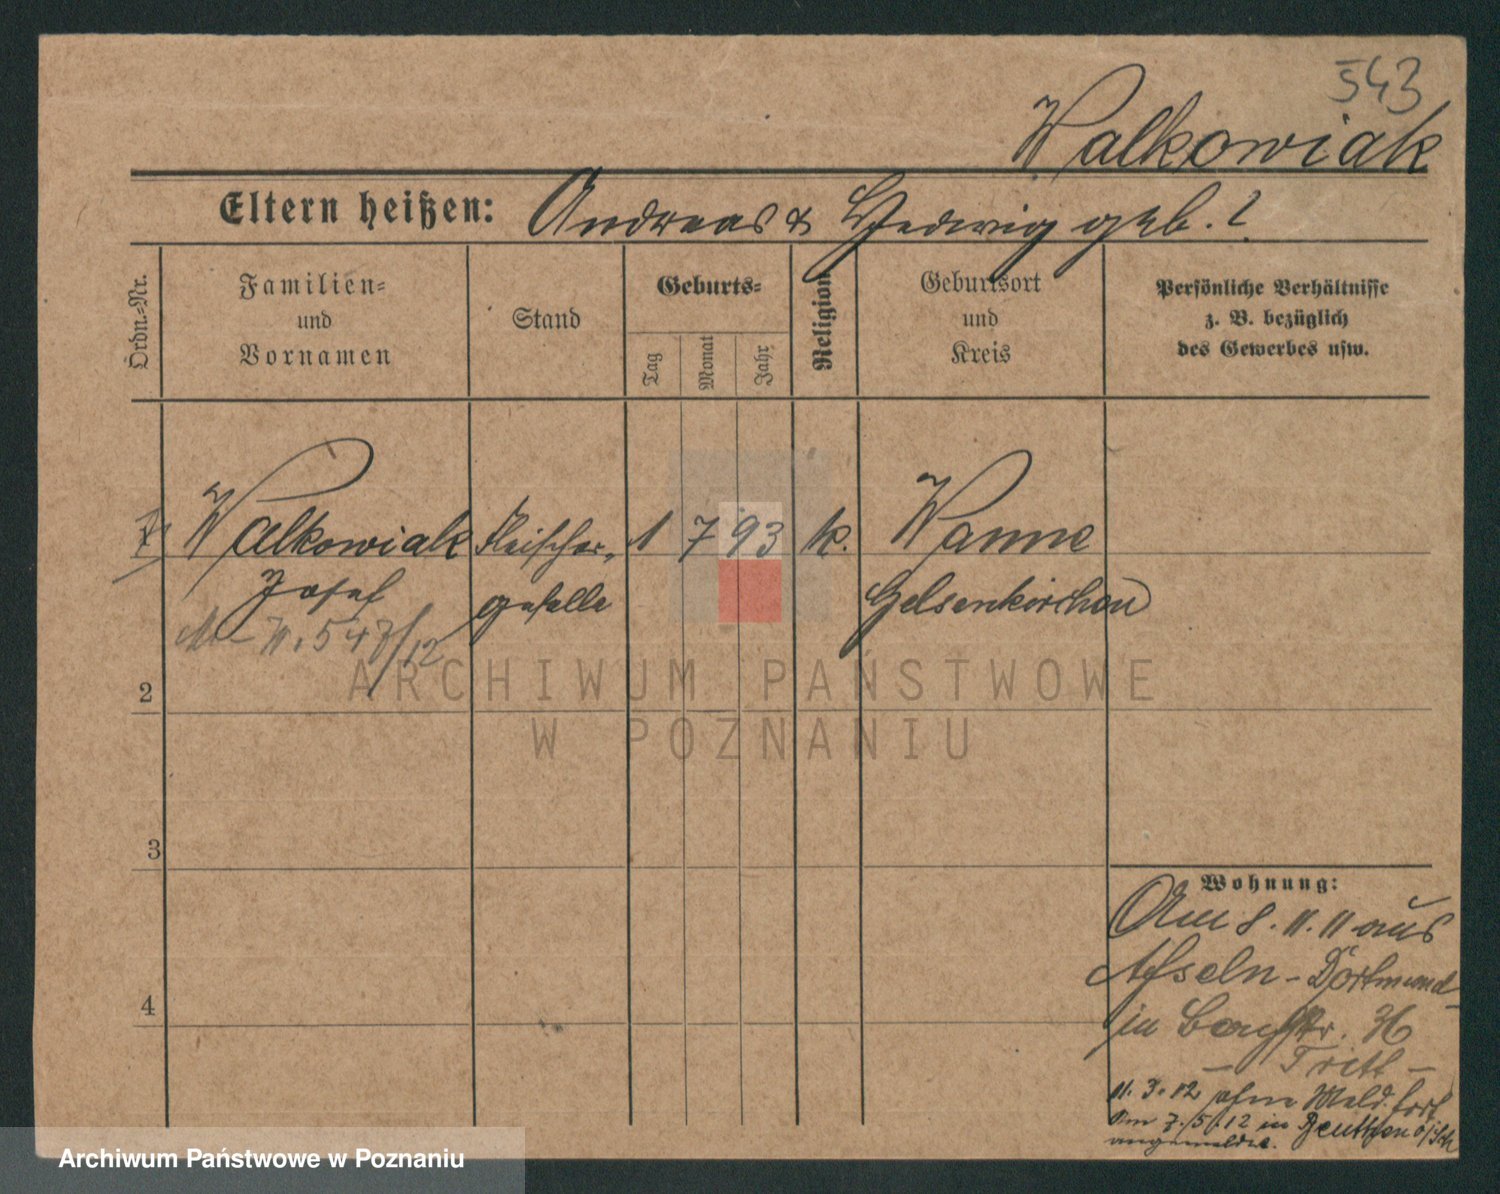 543
Walkowiak
Eltern heißen: Andreas & Hedwig geb. ?
Ordn.-Nr.
Familien-
und
Vornamen
Stand
Geburts-
Tag
Monat
Jahr
Religion
Geburtsort
und
Kreis
Persönliche Verhältnisse
z. B. bezüglich
des Gewerbes usw.
1 Walkowiak Fleischer- 1 7 93 k. Wanne
Josef geselle Gelsenkirchen
547/12
2
3
4
Wohnung:
Am 8. 11. 11 aus
Asseln - Dortmund
in
- Tritt -
11. 3. 12 ohne Meld. fort
Am 7./5. 12 in Beuthen o/Sch
angemeldet.
ARCHIWUM PAŃSTWOWE
W POZNANIU
Archiwum Państwowe w Poznaniu